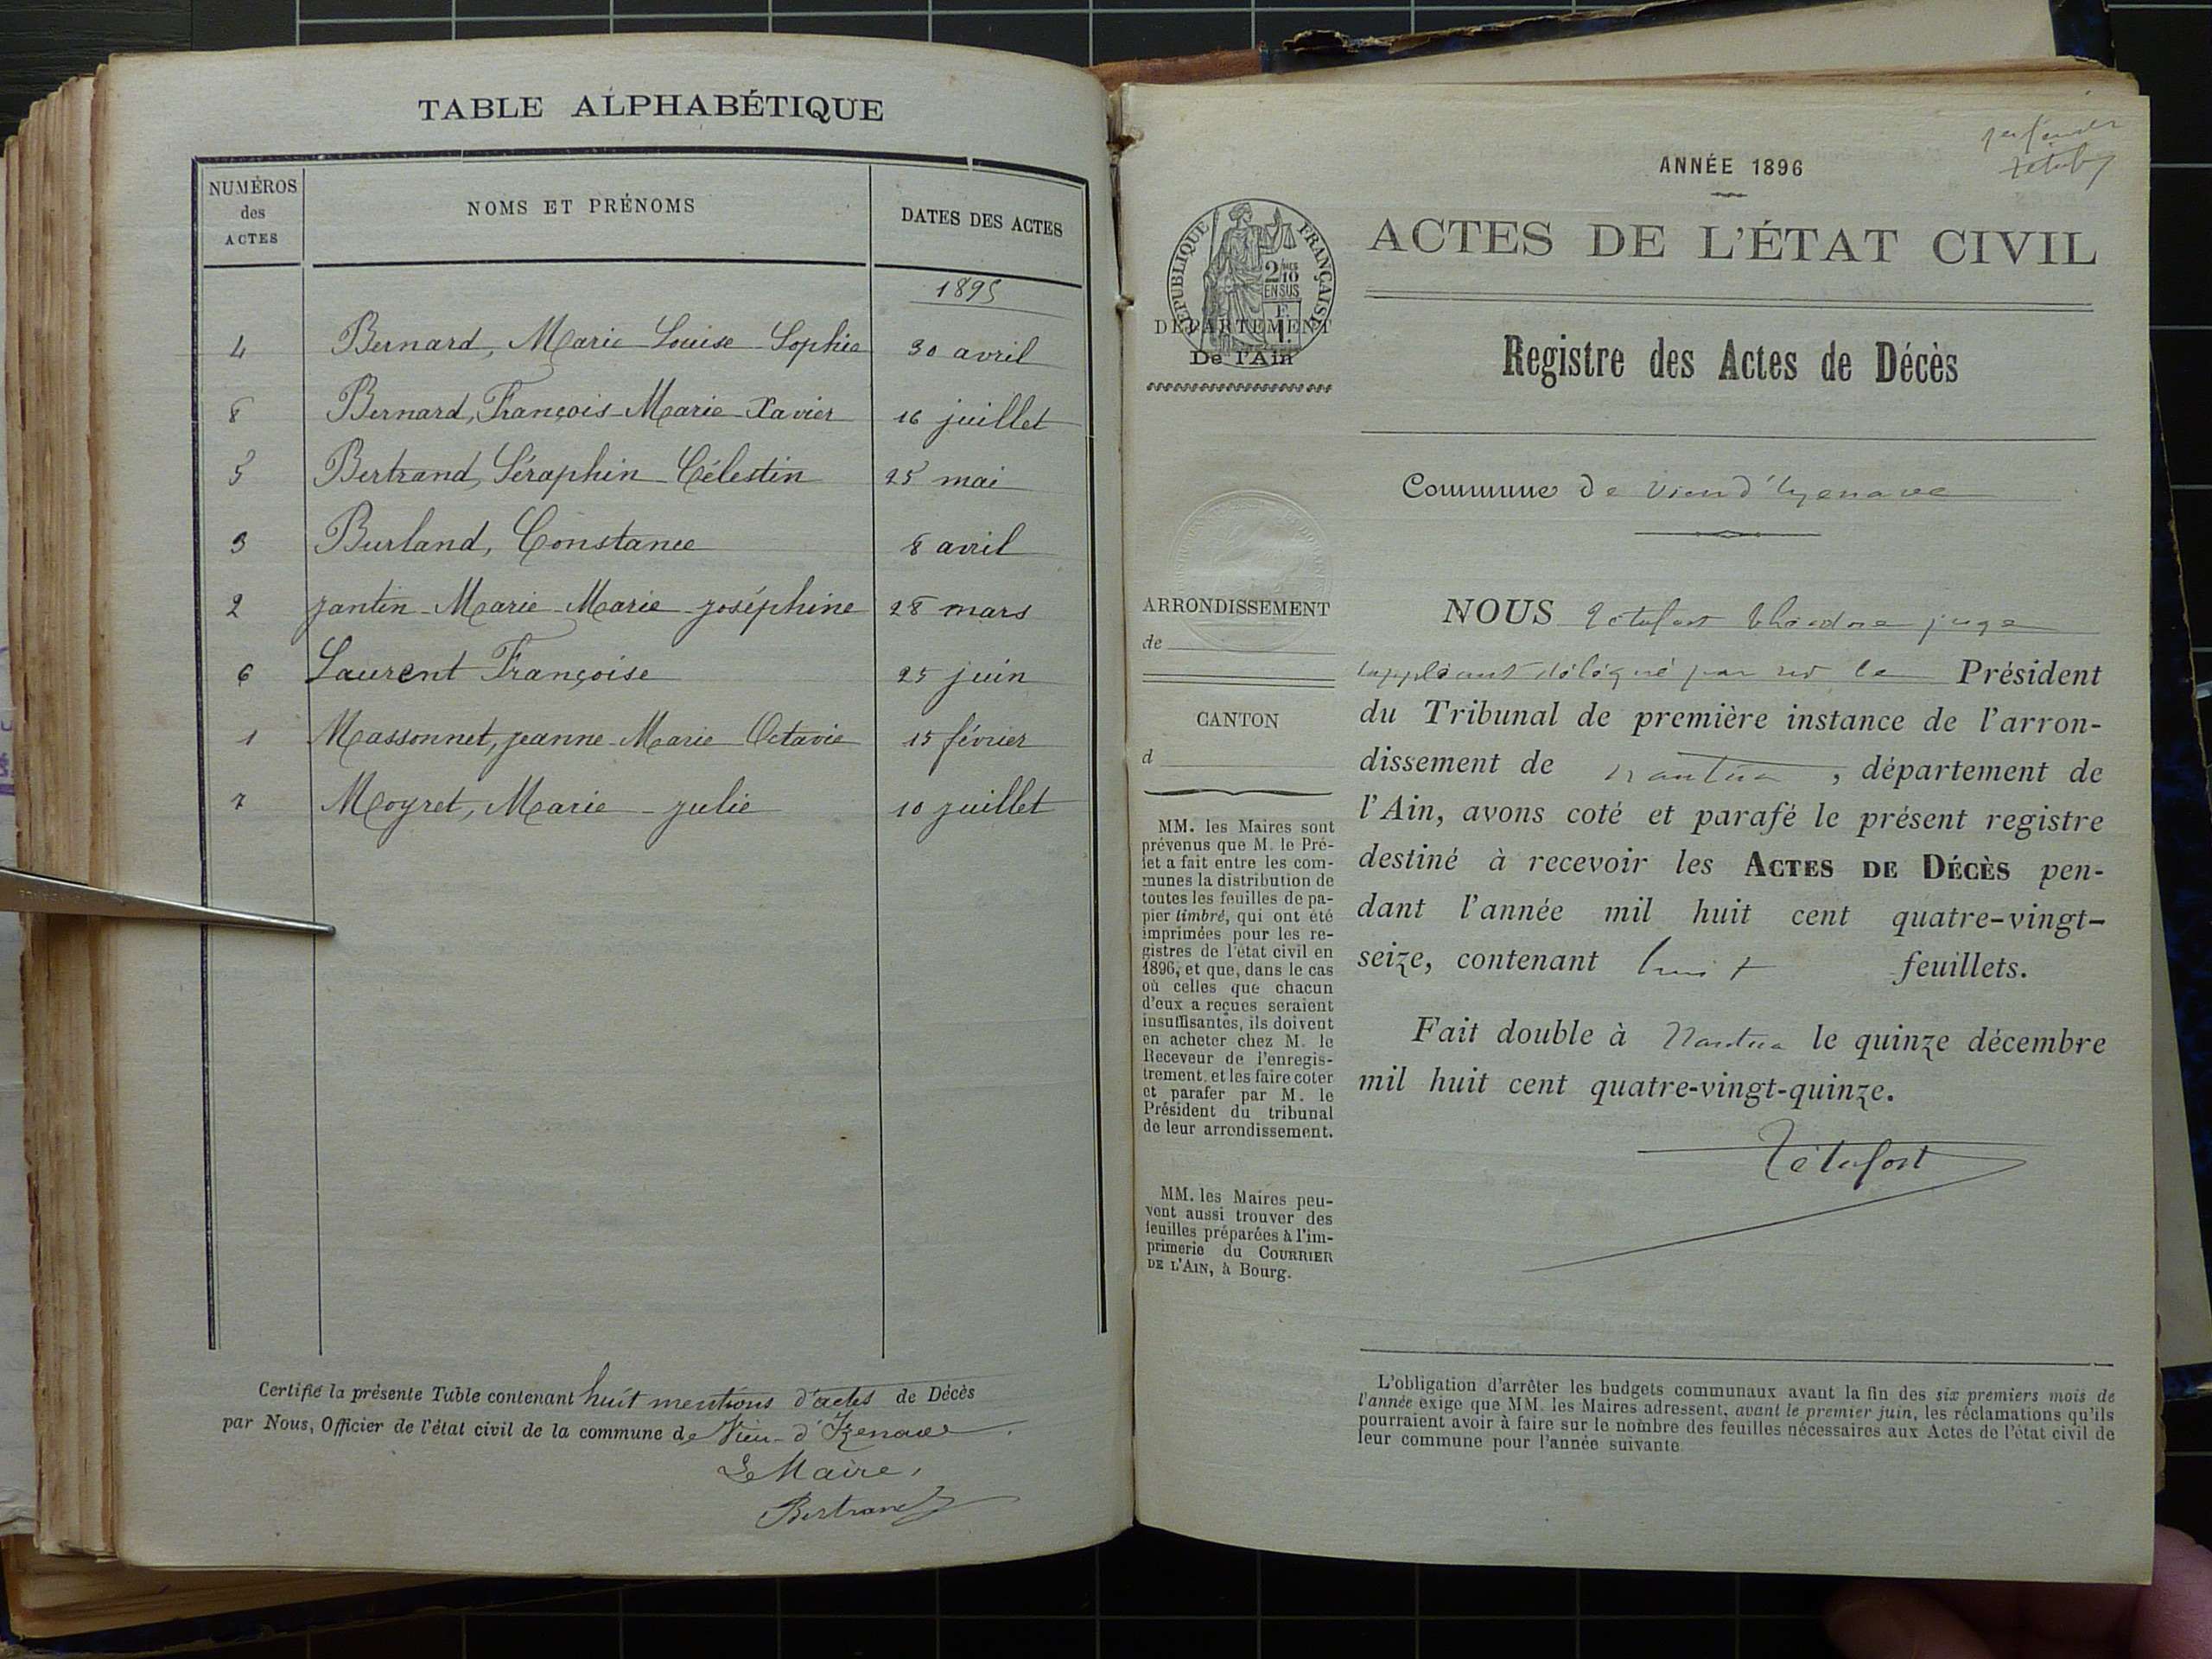 TABLE ALPHABÉTIQUE
NUMÉROS des ACTES NOMS ET PRÉNOMS DATES DES ACTES
1895
4 Bernard, Marie Louise Sophie 30 avril
8 Bernard, François-Marie-Xavier 16 juillet
5 Bertrand, Séraphin Célestin 25 mai
3 Burland, Constance 8 avril
2 Jantin-Marie-Marie-Joséphine 28 mars
6 Laurent Françoise 25 juin
1 Massonnet, Jeanne-Marie-Octavie 15 février
7 Moyret, Marie-Julie 10 juillet
Certifié la présente Table contenant huit mentions d'actes de Décès
par Nous, Officier de l'état civil de la commune de Vieu-d'Izenave.
Le Maire,
Bertrand
ANNÉE 1896
ACTES DE L'ÉTAT CIVIL
RÉPUBLIQUE FRANÇAISE
2/10
EN SUS
DÉPARTEMENT
De l'Ain
Registre des Actes de Décès
Commune de Vieu d'Izenave
ARRONDISSEMENT
de
CANTON
d
NOUS Tétafort Théodore juge
suppléant délégué par nº le Président
du Tribunal de première instance de l'arron-
dissement de Nantua, département de
l'Ain, avons coté et parafé le présent registre
destiné à recevoir les ACTES DE DÉCÈS pen-
dant l'année mil huit cent quatre-vingt-
seize, contenant huit feuillets.
Fait double à Nantua le quinze décembre
mil huit cent quatre-vingt-quinze.
Tétafort
MM. les Maires sont
prévenus que M. le Pré-
fet a fait entre les com-
munes la distribution de
toutes les feuilles de pa-
pier timbré, qui ont été
imprimées pour les re-
gistres de l'état civil en
1896, et que, dans le cas
où celles que chacun
d'eux a reçues seraient
insuffisantes, ils doivent
en acheter chez M. le
Receveur de l'enregis-
trement, et les faire coter
et parafer par M. le
Président du tribunal
de leur arrondissement.
MM. les Maires peu-
vent aussi trouver des
feuilles préparées à l'im-
primerie du COURRIER
DE L'AIN, à Bourg.
L'obligation d'arrêter les budgets communaux avant la fin des six premiers mois de
l'année exige que MM. les Maires adressent, avant le premier juin, les réclamations qu'ils
pourraient avoir à faire sur le nombre des feuilles nécessaires aux Actes de l'état civil de
leur commune pour l'année suivante